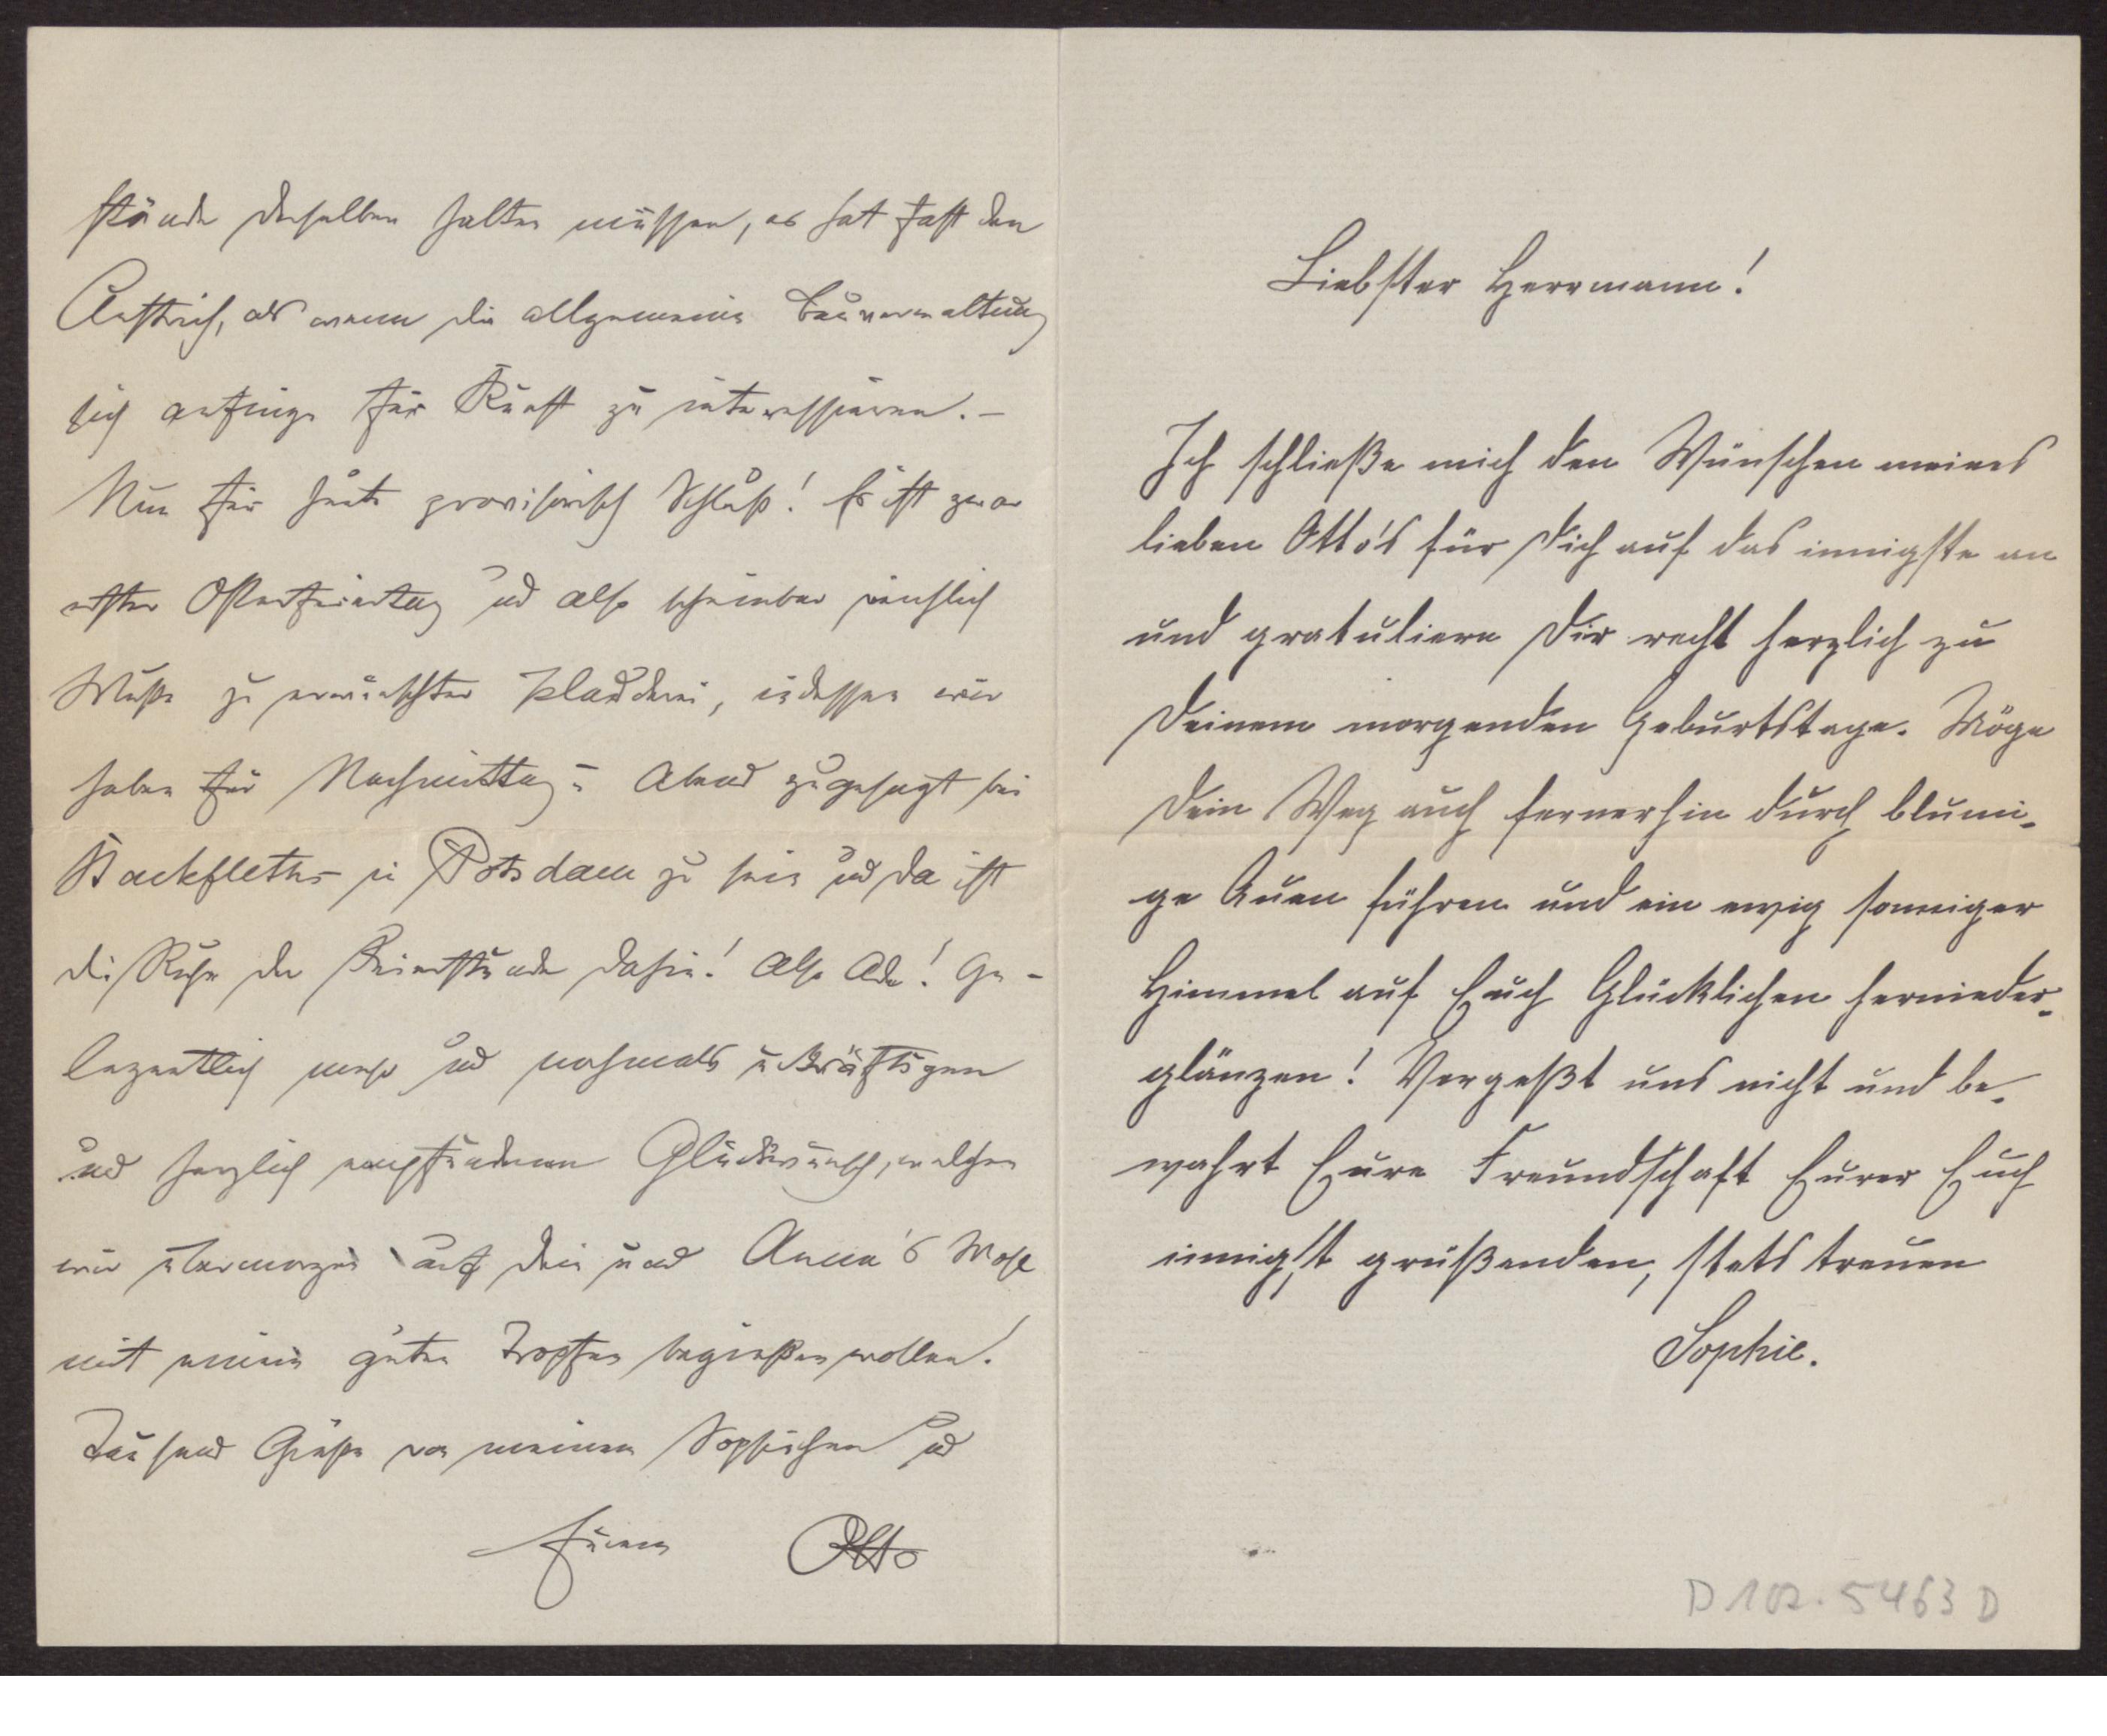 stände derselben halten müssen, es hat fast den
Anstrich, als wenn die allgemeine Bauverwaltung
sich anfinge für Kunst zu interessieren. –
Nun für heute provisorisch Schluß! Es ist zwar
erster Osterfeiertag und also scheinbar reichlich
Muße zu erwünschter Plauderei, indessen wir
haben für Nachmittag u. Abend zugesagt bei
Hackfleths in Potsdam zu sein und da ist
die Ruhe der Feierstunde dahin! Also Ade! Ge-
legentlich mehr und nochmals u kräftigen
und herzlich empfundenen Glückwunsch, welchen
wir übermorgen auf Dein und Anna's Wohl
mit einem guten Tropfen begießen wollen!
Tausend Grüße von meinem Sophiechen und
Eurem Otto
Liebster Herrmann!
Ich schließe mich den Wünschen meines
lieben Otto's für Dich auf das innigste an
und gratuliere Dir recht herzlich zu
Deinem morgenden Geburtstage. Möge
Dein Weg auch fernerhin durch blumi-
ge Auen führen und ein ewig sonniger
Himmel auf Euch Glücklichen hernieder-
glänzen! Vergeßt uns nicht und be-
wahrt Eure Freundschaft Eurer Euch
innigst grüßenden, stets treuen
Sophie.
D 102. 5463 D